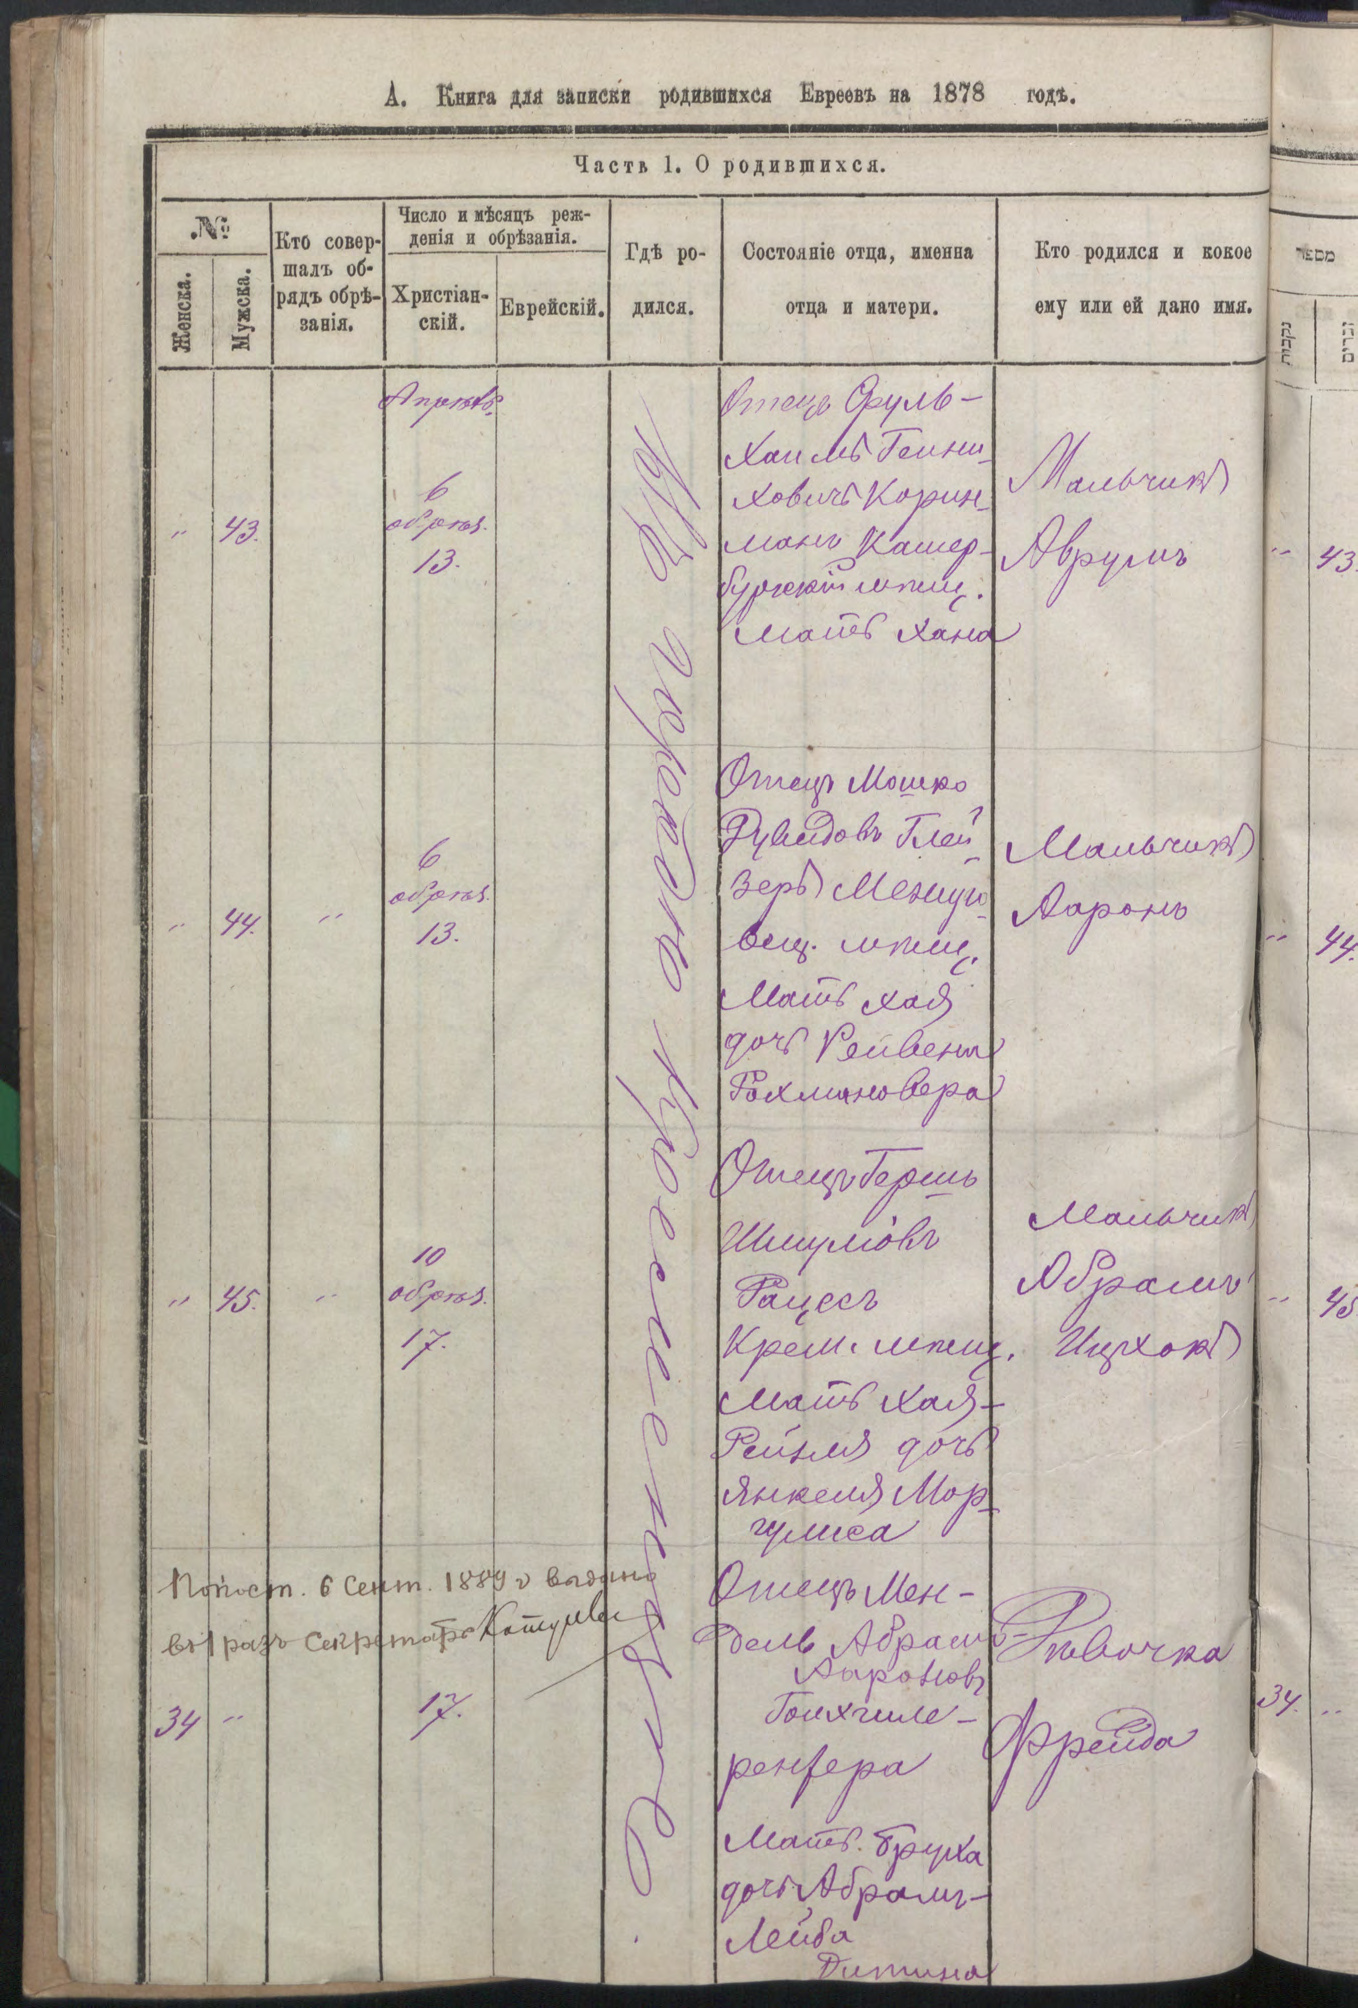 А. Книга для записки родившихся Евреевъ на 1878 годъ.
Часть 1. О родившихся.
№
Женска.
Мужска.
Кто совер-
шалъ об-
рядъ обрѣ-
занія.
Число и мѣсяцъ реж-
денія и обрѣзанія.
Христіан-
скій.
Еврейскій.
Гдѣ ро-
дился.
Состояніе отца, именна
отца и матери.
Кто родился и кокое
ему или ей дано имя.
מספר
נקבות
זכרים
Въ городѣ
Апрель.
" 43.
6
обрѣз.
13.
Отецъ Сруль-
Хаимъ Гених-
ховичъ Корин-
манъ
мѣщ.
Мать Хана
Мальчикъ
Аврумъ
" 43.
" 44. "
6
обрѣз.
13.
Отецъ Мошко
Рувидовъ Глей
зеръ
вец. мѣщ.
Мать Хая
дочь Рейвена
Рохмановера
Мальчикъ
Ааронъ
" 44.
" 45. "
10
обрѣз.
17.
Отецъ Гершь
Шмулiовъ
Рацесъ
Крем. мѣщ.
Мать Хая-
Рейзля дочь
Янкеля Мор-
гулиса
Мальчикъ
Абрамъ
Ицхокъ
" 45
По пост. 6 Сент. 1889 г выдано
въ 1 разъ Секретарь
34 "
17.
Отецъ Мен-
дель Абрамъ-
Аароновъ
Мать Бруха
дочь Абрамъ-
Лейба
Дитина
Дѣвочка
Фрейда
34. "